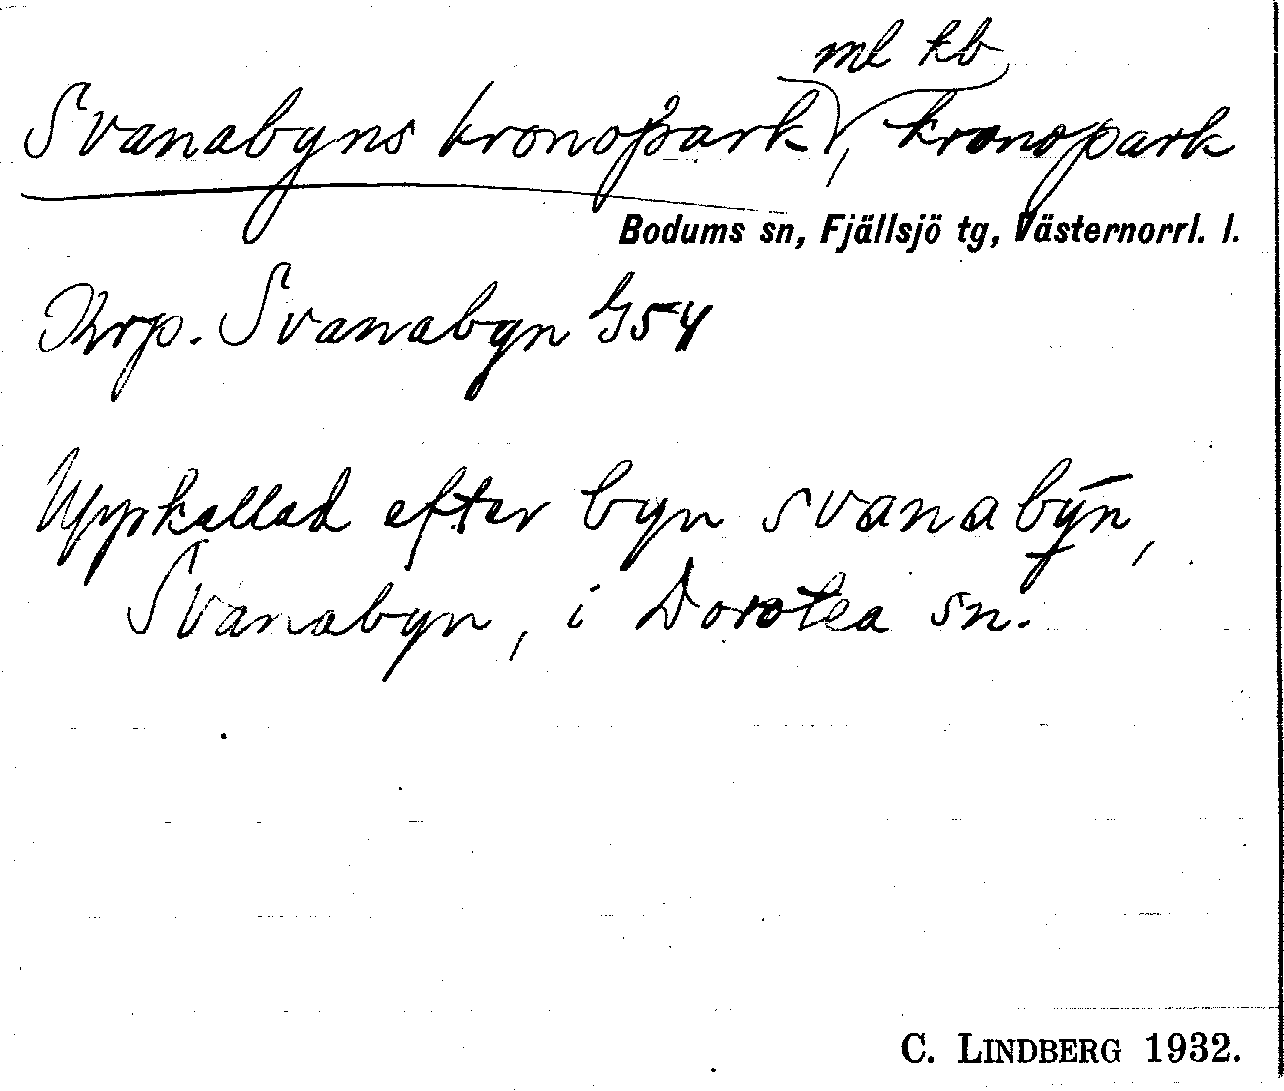 ml kb
Svanabyns kronopark, kronopark
Bodums sn, Fjällsjö tg, Västernorrl. l.
Krp. Svanabyn G54
Uppkallad efter byn svanabȳn,
Svanabyn, i Dorotea sn.
C. LINDBERG 1932.